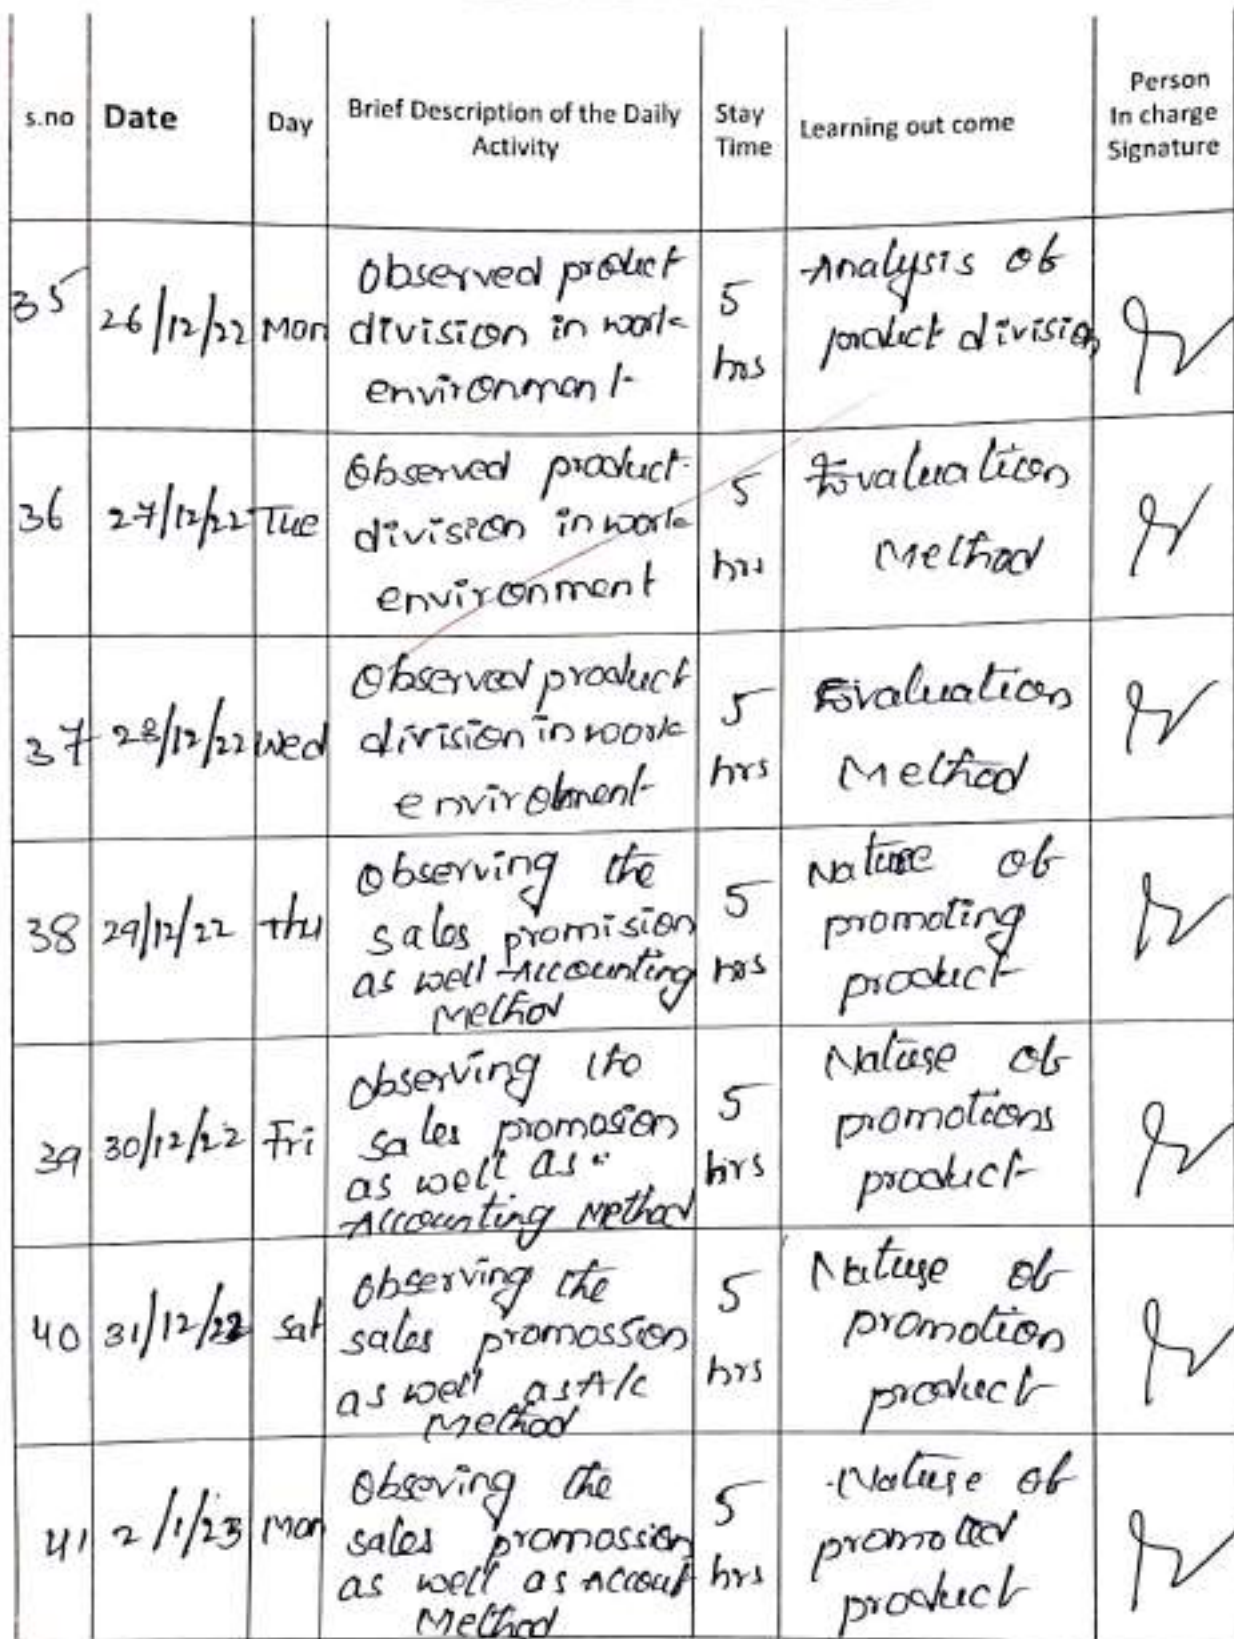 s.no Date Day Brief Description of the Daily Activity Stay Time Learning out come Person In charge Signature
35 26/12/22 Mon Observed product division in work environment 5 hrs Analysis of product division
36 27/12/22 Tue Observed product division in work environment 5 hrs Evaluation Method
37 28/12/22 Wed Observed product division in work envirolment 5 hrs Evaluation Method
38 29/12/22 thu Observing the sales promision as well Accounting Method 5 hrs Nature of promoting product
39 30/12/22 Fri Observing the sales promosion as well as Accounting Method 5 hrs Nature of promotions product
40 31/12/22 sat Observing the sales promossion as well as A/c Method 5 hrs Nature of promotion product
41 2/1/23 Mon Obseving the sales promossion as well as Accout Method 5 hrs Nature of promoted product